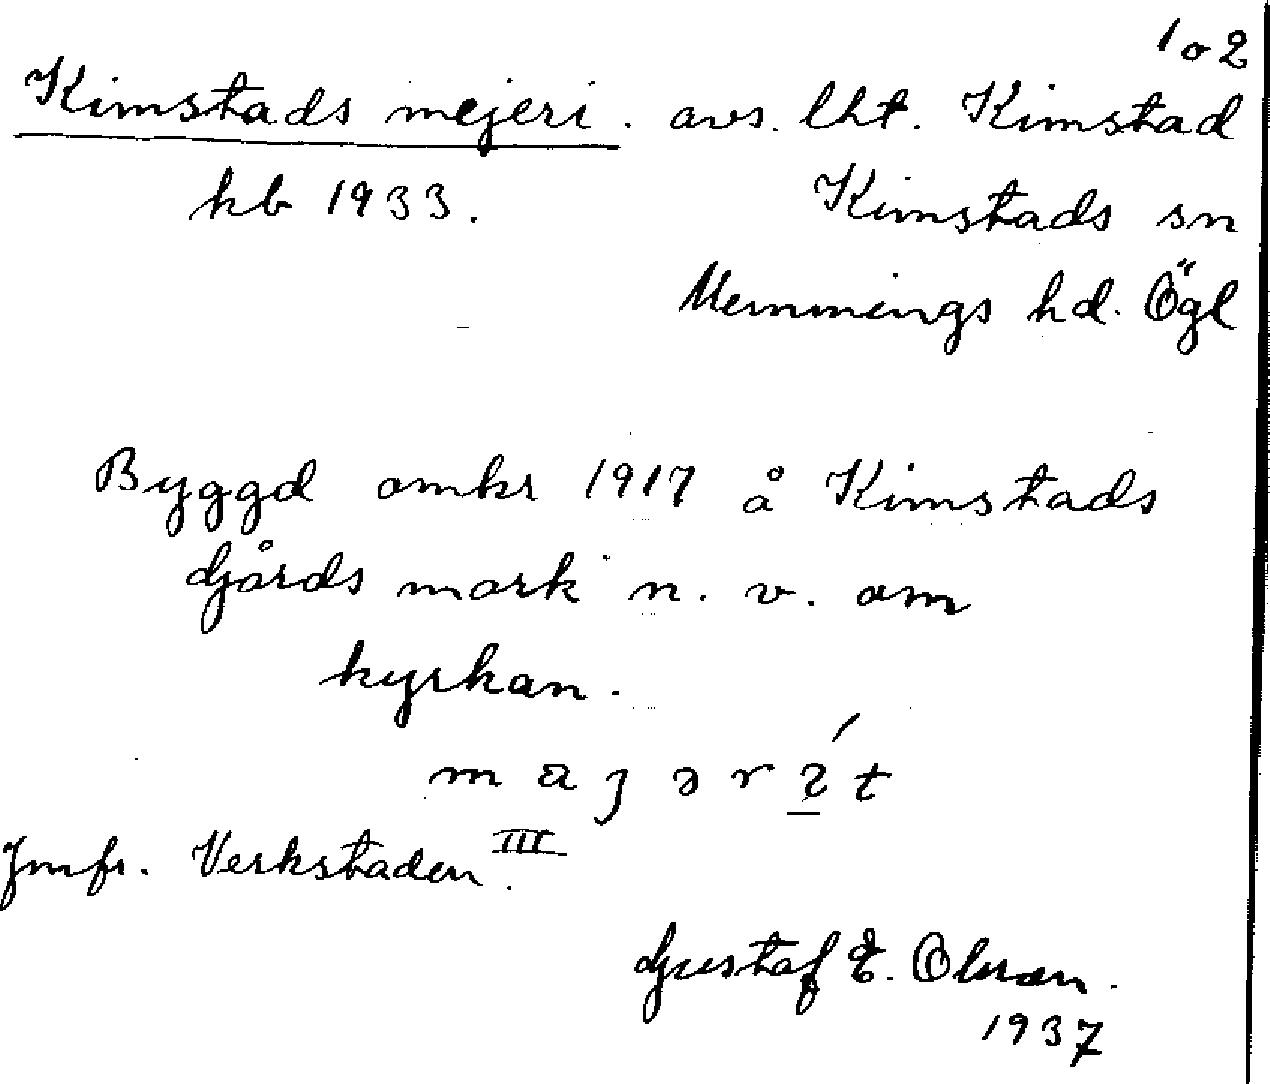 102
Kimstads mejeri. avs. lht. Kimstad
kb 1933. Kimstads sn
Memmings hd. Ögl
Byggd omkr 1917 å Kimstads
Gårds mark n. v. om
kyrkan.
majərɩ́t
Jmfr. Verkstaden III.
Gustaf E. Olsson.
1937